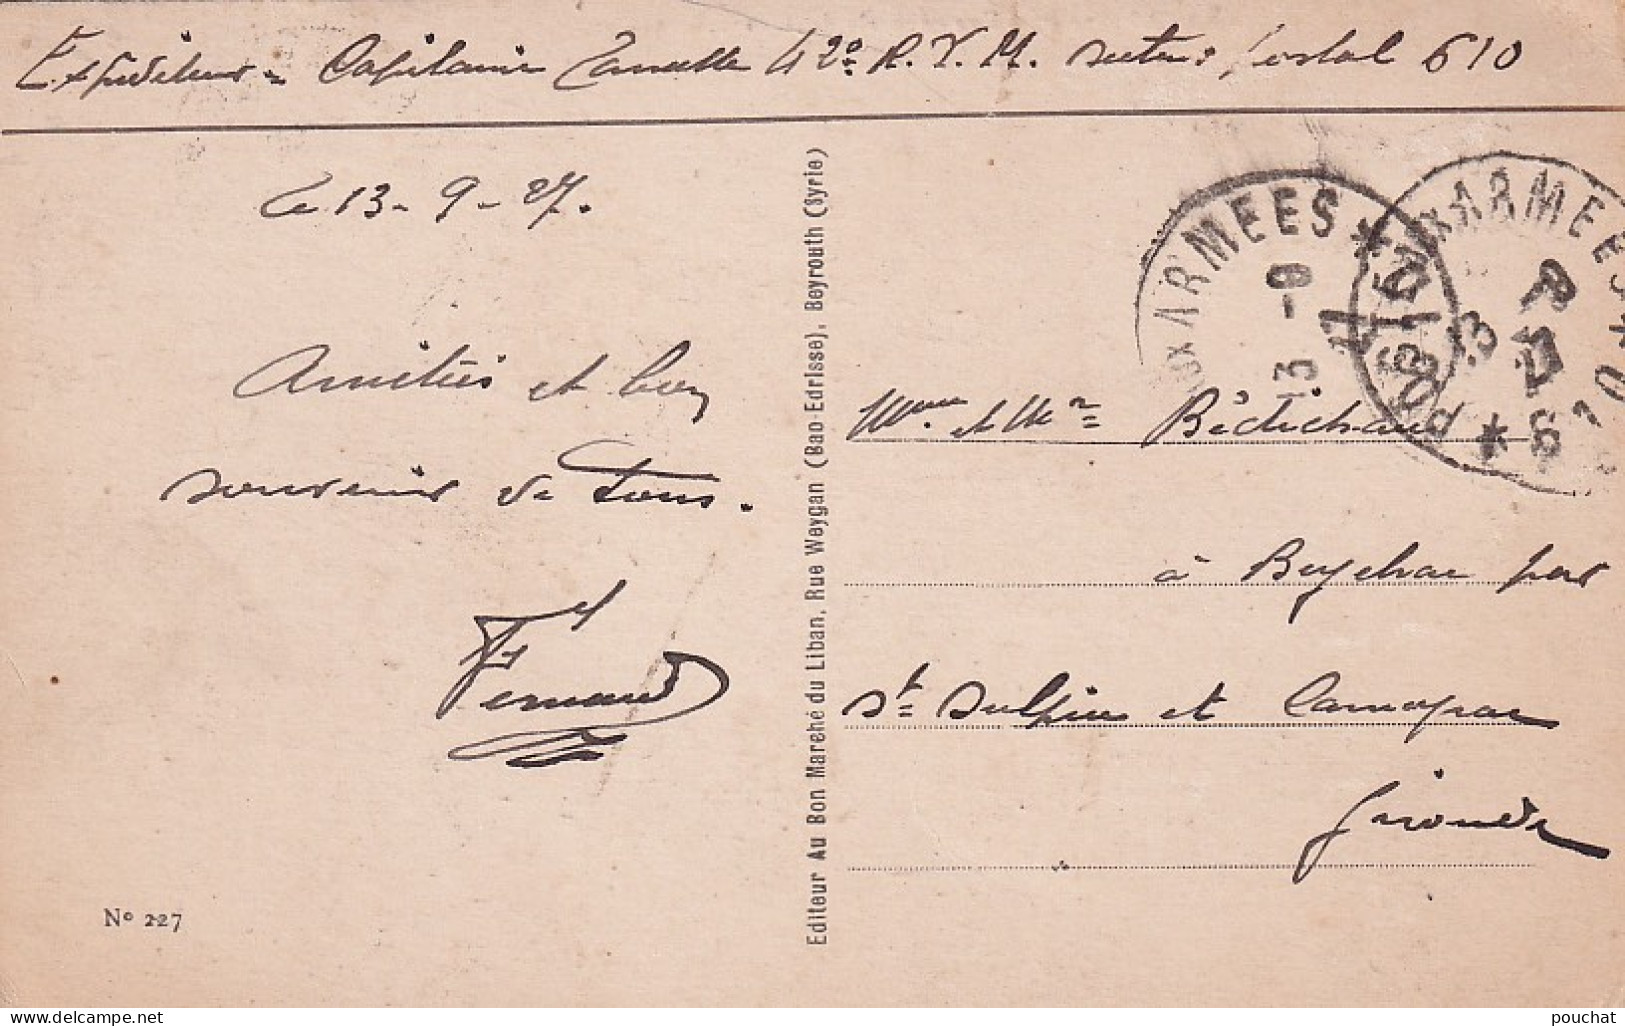 Expéditeur = Capitaine 42e R.T.M. secteur postal 610
Le 13-9-27.
Amitiés et bon
souvenir de tous.
Fernand
Mme et Mr Bétichaud
à Beychac par
St Sulpice et Cameyrac
Gironde
Editeur Au Bon Marehé du Liban, Rue Weygan (Bao-Edrisse), Beyrouth (Syrie)
No 227
AUX ARMEES * POSTES
13 -9 27
AUX ARMEES * 610 * POSTES
pouchat